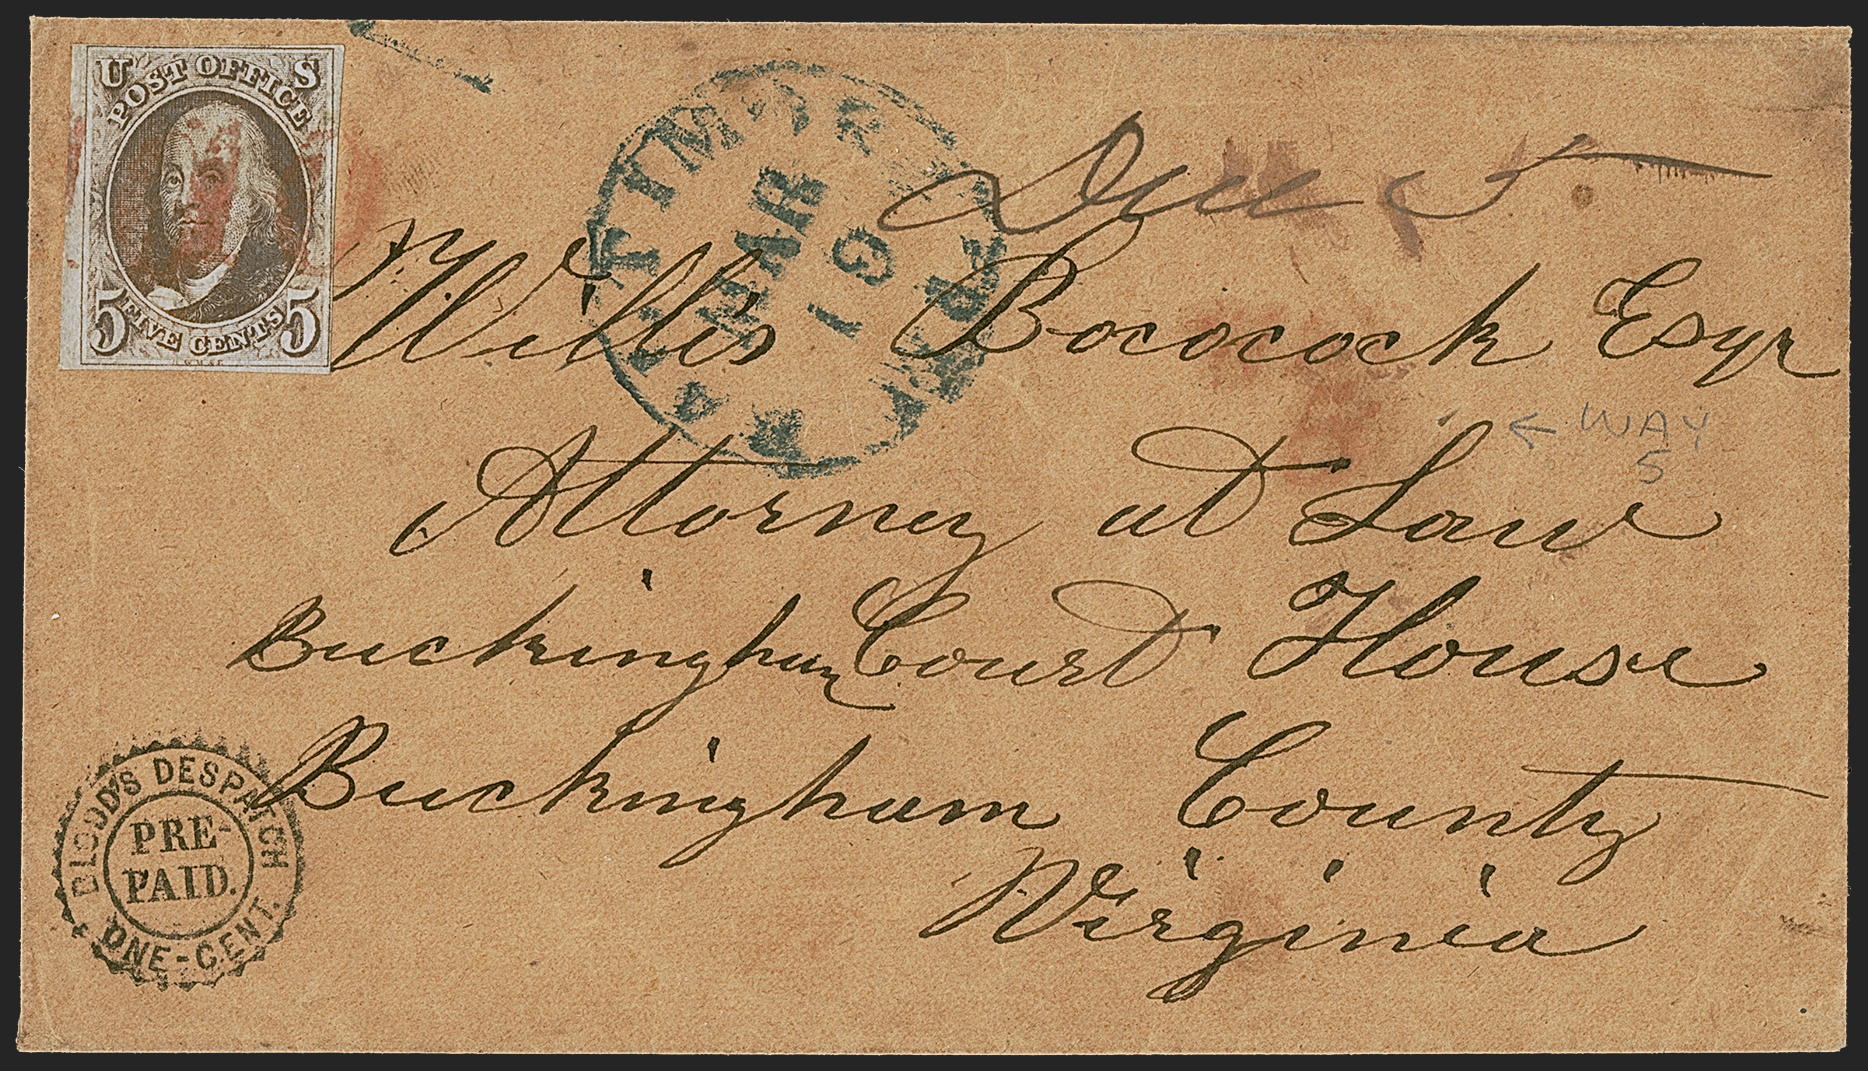 U S
POST OFFICE
5 FIVE CENTS 5
BALTIMORE Md.
MAR
19
Due 5
Willis Bococock Esqr
← WAY
5
Attorney at Law
Buckingham Court House
Buckingham County
Virginia
BLOOD'S DESPATCH
PRE-
PAID.
ONE-CENT.